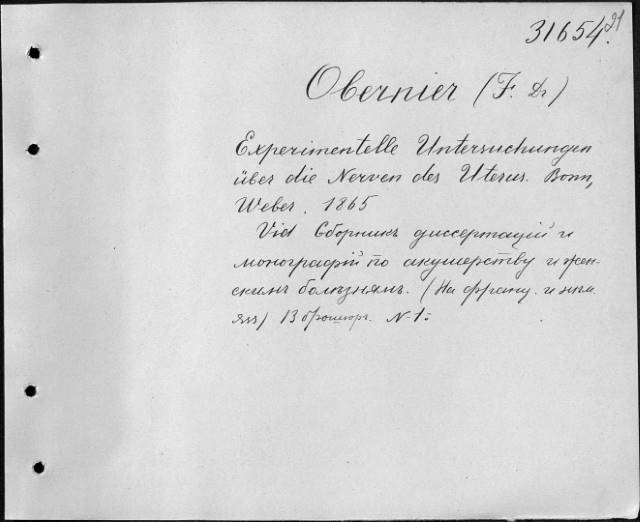 31654.21
Obernier (F. Dr)
Experimentelle Untersuchungen
über die Nerven des Uterus. Bonn,
Weber. 1865
Vid Сборникъ диссертацiй и
монографiй по акушерству и жен-
скимъ болѣзнямъ. (На франц. и нѣм.
яз.) 13 брошюръ. N-1.